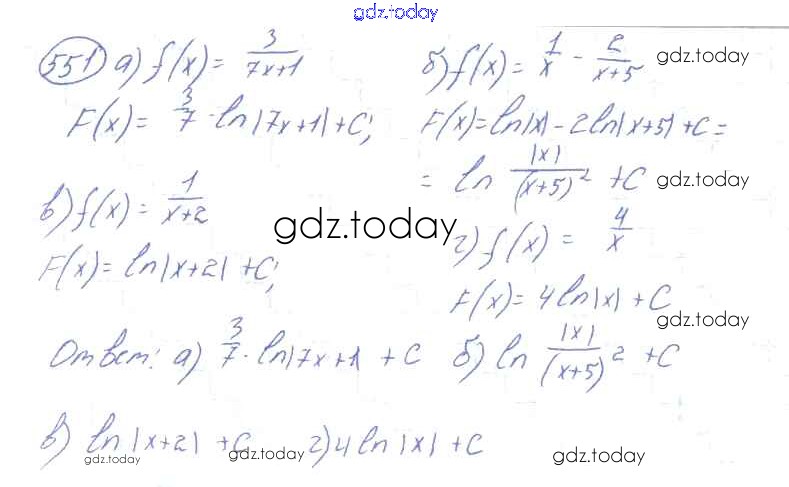 gdz.today
551 а) f(x) = 3/(7x+1)
F(x) = 3/7 · ln|7x+1| + C;
б) f(x) = 1/x - 2/(x+5) gdz.today
F(x) = ln|x| - 2ln|x+5| + C =
= ln |x|/(x+5)² + C gdz.today
в) f(x) = 1/(x+2)
gdz.today
F(x) = ln|x+2| + C;
г) f(x) = 4/x
F(x) = 4ln|x| + C
gdz.today
Ответ: а) 3/7 · ln|7x+1| + C б) ln |x|/(x+5)² + C
в) ln|x+2| + C г) 4ln|x| + C
gdz.today gdz.today gdz.today